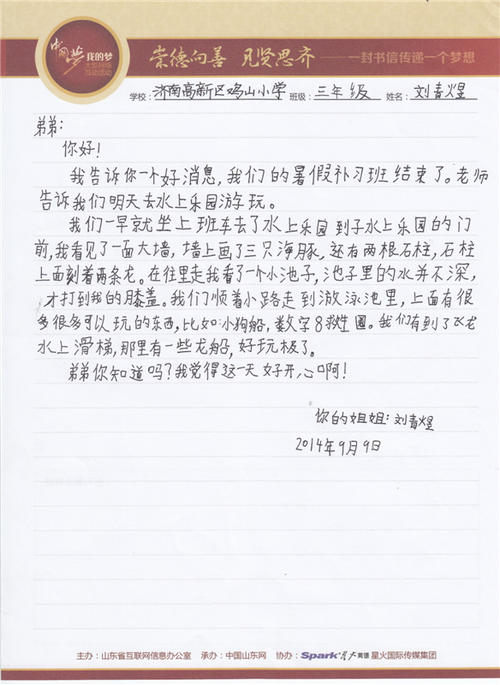 中国梦 我的梦
大型网络
互动活动
崇德向善 见贤思齐 一封书信传递一个梦想
学校: 济南高新区鸡山小学 班级: 三年级 姓名: 刘春煋
弟弟:
你好!
我告诉你一个好消息,我们的暑假补习班结束了。老师
告诉我们明天去水上乐园游玩。
我们一早就坐上班车去了水上乐园到子水上乐园的门
前,我看见了一面大墙,墙上画了三只海豚,还有两根石柱,石柱
上面刻着两条龙。在往里走我看了一个小池子,池子里的水并不深,
才打到我的膝盖。我们顺着小路走到游泳池里,上面有很
多很多可以玩的东西,比如:小狗船,数字8救生圈。我们有到了飞龙
水上滑梯,那里有一些龙船,好玩极了。
弟弟你知道吗?我觉得这一天好开心啊!
你的姐姐:刘春煋
2014年9月9日
主办:山东省互联网信息办公室 承办:中国山东网 协办:Spark星火英语 星火国际传媒集团